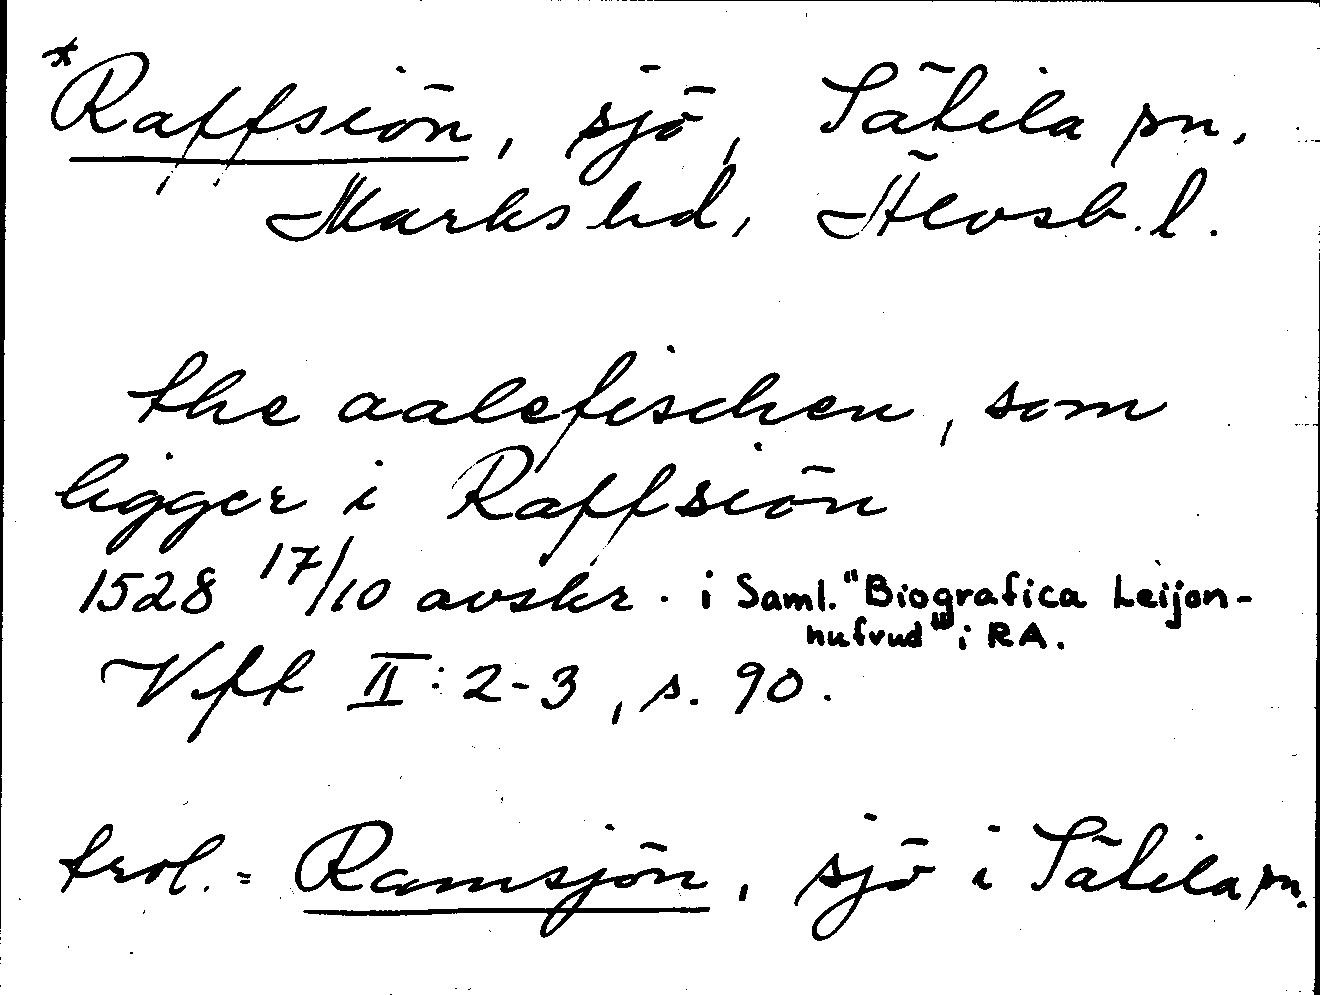 *Raffsiön, sjö, Sätila sn,
Marks hd, Älvsb. l.
the aalefischen, som
ligger i Raffsiön
1528 17/10 avskr. i Saml. "Biografica Leijon-
hufvud" i RA.
Vft II: 2-3, s. 90.
trol. = Ramsjön, sjö i Sätila sn.